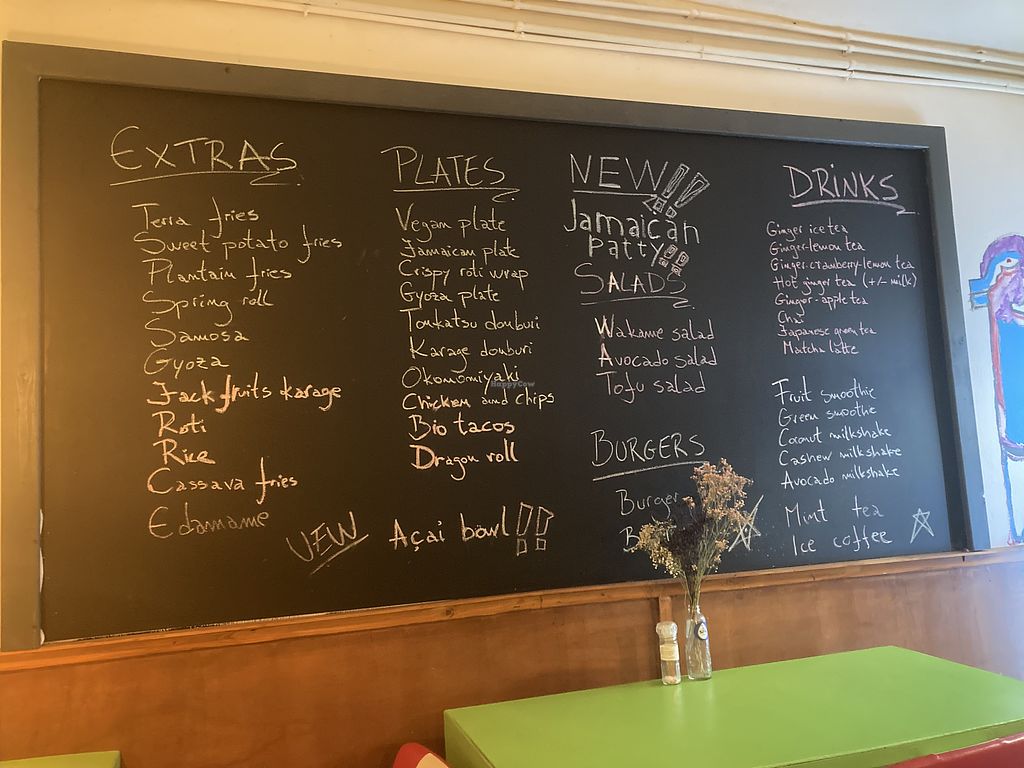 EXTRAS
Terra fries
Sweet potato fries
Plantain fries
Spring roll
Samosa
Gyoza
Jack fruits karage
Roti
Rice
Cassava fries
Edamame
PLATES
Vegan plate
Jamaican plate
Crispy roti wrap
Gyoza plate
Tonkatsu donburi
Karage donburi
Okonomiyaki
Chicken and chips
Bio tacos
Dragon roll
NEW
Açai böwl!!
NEW!!
Jamaican
Patty!!
SALADS
Wakame salad
Avocado salad
Tofu salad
BURGERS
Burger
DRINKS
Ginger ice tea
Ginger-lemon tea
Ginger-cramberry-lemon tea
Hot ginger tea (+/- milk)
Ginger-apple tea
Chaï
Japanese green tea
Matcha latte
Fruit smoothie
Green smoothe
Coconut milkshake
Cashew milkshake
Avocado milkshake
Mint tea
Ice coffee
HappyCow